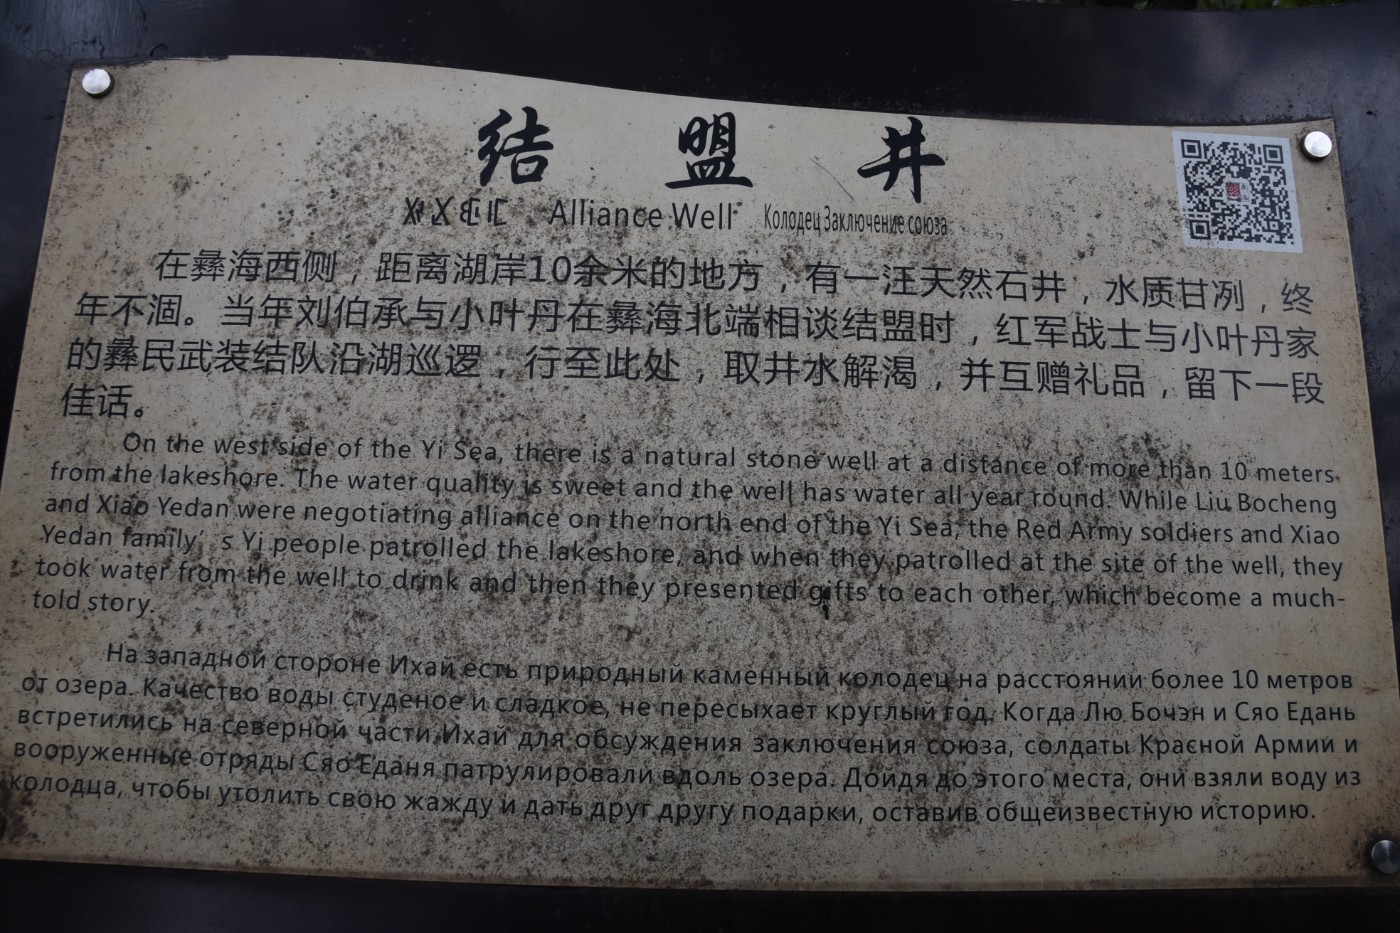 结盟井
Alliance Well Колодец Заключение союза
在彝海西侧，距离湖岸10余米的地方，有一汪天然石井，水质甘冽，终
年不涸。当年刘伯承与小叶丹在彝海北端相谈结盟时，红军战士与小叶丹家
的彝民武装结队沿湖巡逻，行至此处，取井水解渴，并互赠礼品，留下一段
佳话。
On the west side of the Yi Sea, there is a natural stone well at a distance of more than 10 meters
from the lakeshore. The water quality is sweet and the well has water all year round. While Liu Bocheng
and Xiao Yedan were negotiating alliance on the north end of the Yi Sea, the Red Army soldiers and Xiao
Yedan family's Yi people patrolled the lakeshore, and when they patrolled at the site of the well, they
took water from the well to drink and then they presented gifts to each other, which become a much-
told story.
На западной стороне Ихай есть природный каменный колодец на расстоянии более 10 метров
от озера. Качество воды студеное и сладкое, не пересыхает круглый год. Когда Лю Бочэн и Сяо Едань
встретились на северной части Ихай для обсуждения заключения союза, солдаты Красной Армии и
вооруженные отряды Сяо Еданя патрулировали вдоль озера. Дойдя до этого места, они взяли воду из
колодца, чтобы утолить свою жажду и дать друг другу подарки, оставив общеизвестную историю.